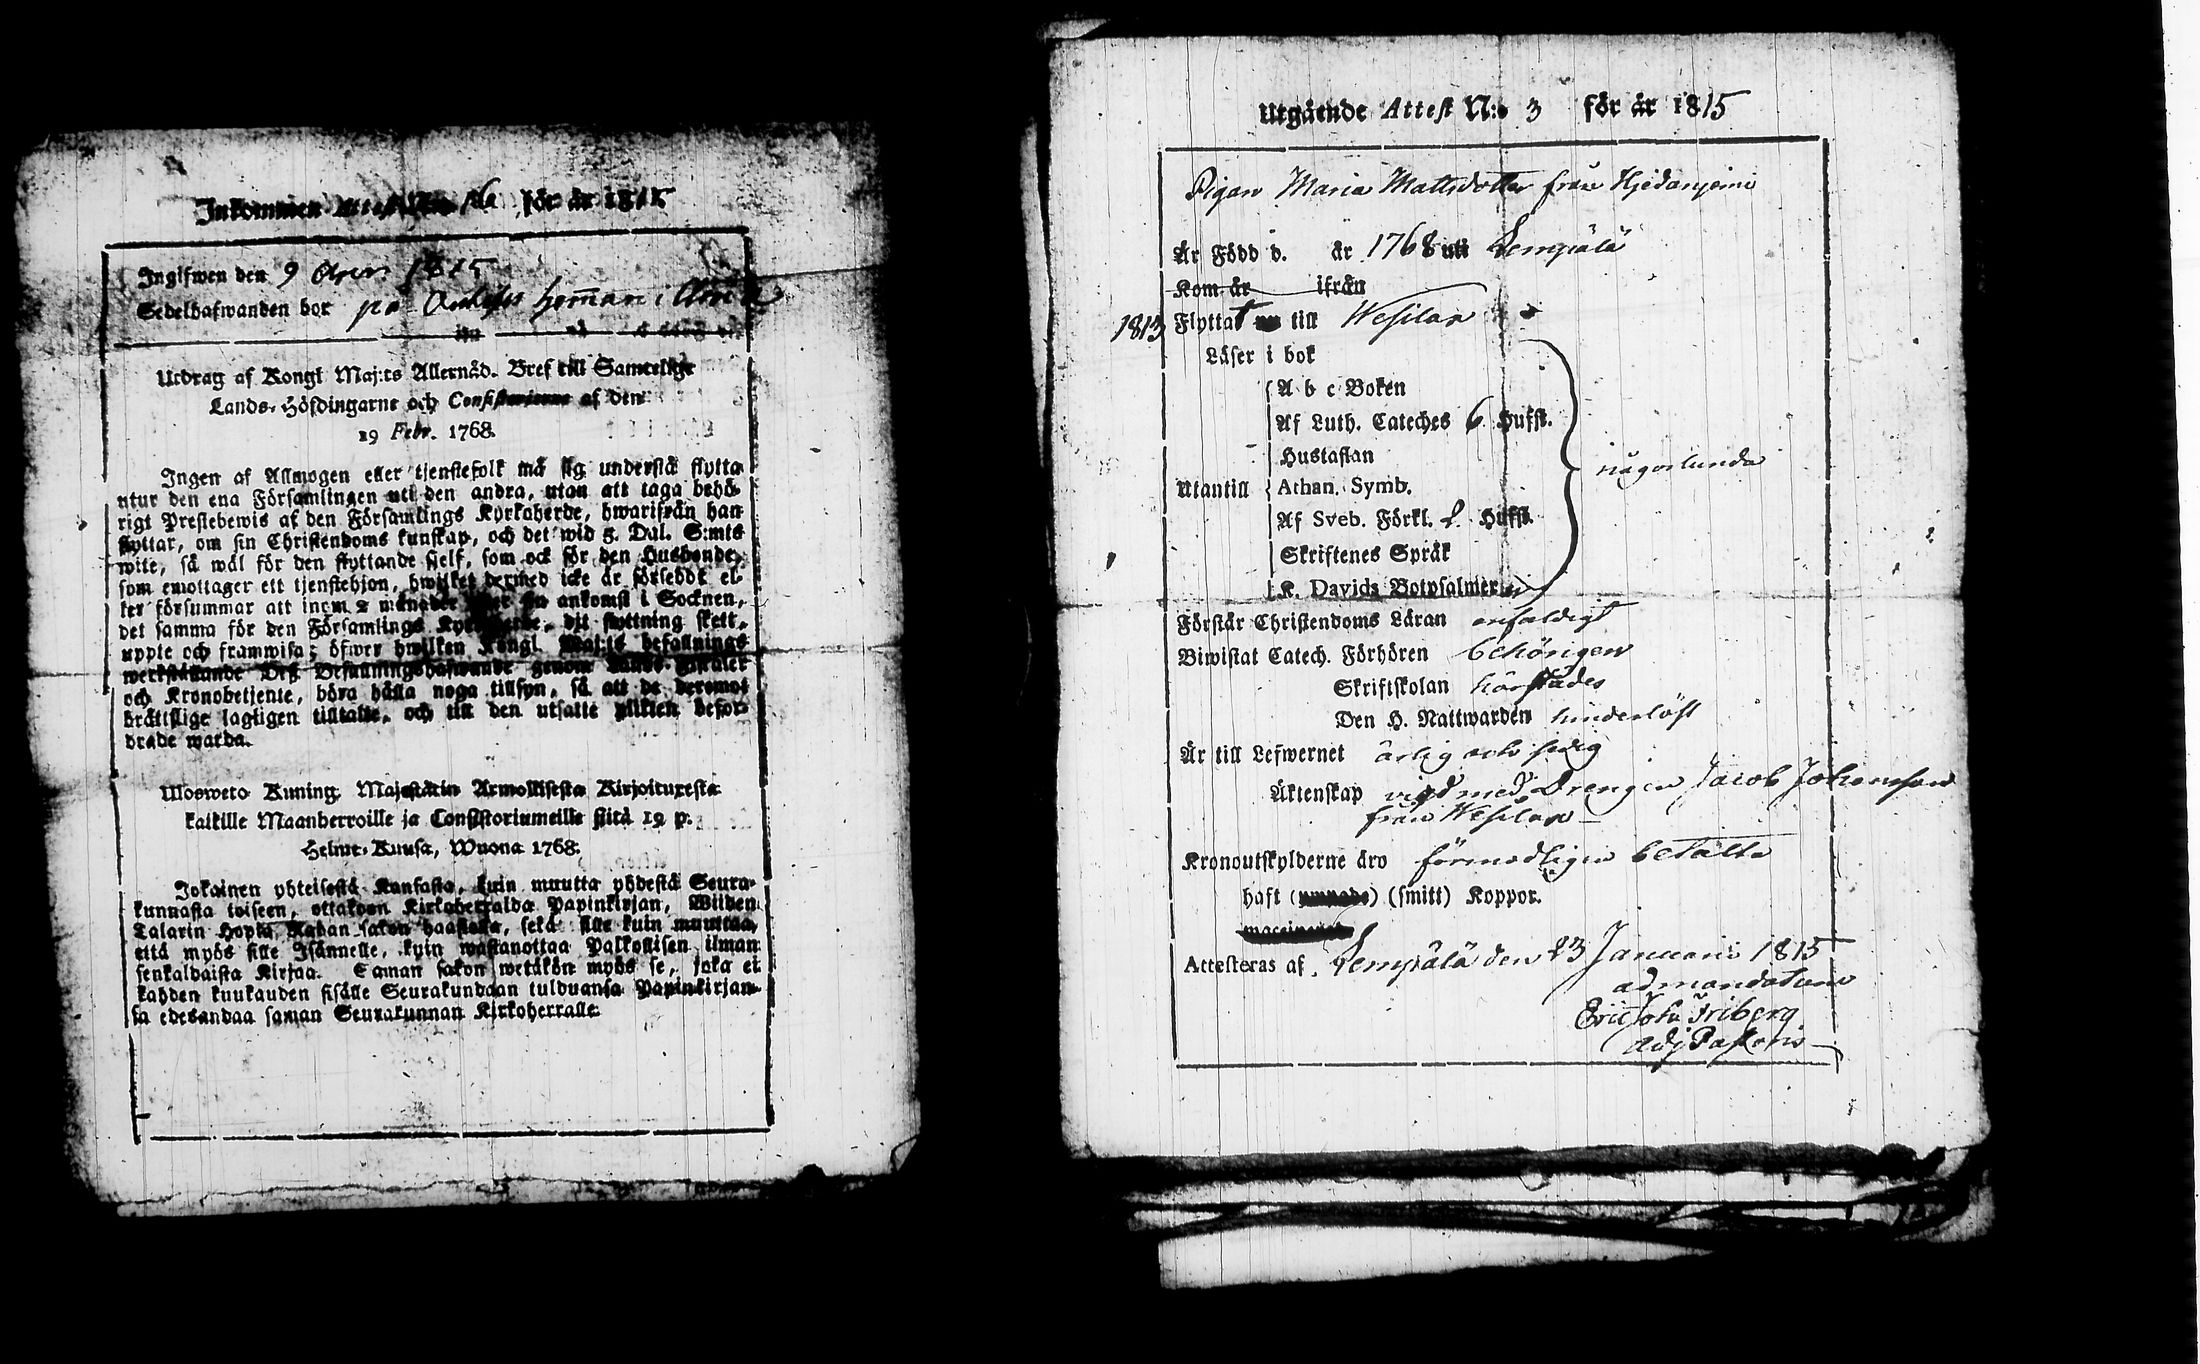 Inkommen Attest N:o 16 för år 1815
Ingifwen den 9 1815
Sedelhafwanden bor på heman i
Utdrag af Kongl Maj:ts Allernåd. Bref till Samtelige
Lands-Höfdingarne och Consistorierne af den
19 Febr. 1768.
Ingen af Allmogen eller tjenstefolk må sig understå flytta
utur den ena Församlingen uti den andra, utan att taga behö-
rigt Prestebewis af den Församlings Kyrkoherde, hwarifrån han
flyttar, om sin Christendoms kunskap, och det wid 5. Dal. S:mts
wite, så wäl för den flyttande sjelf, som ock för den Husbonde,
som emottager ett tjenstehjon, hwilket dermed icke är försedt el-
ler försummar att inom 2 månader ankomst i Socknen,
det samma för den Församlings dit flyttning skett,
uppte och framwisa; öfwer hwilken Kongl. Maj:ts befallnings
werkställande Dess Befallningshafwande genom Lands-Fiskaler
och Kronobetjente, böra hålla noga tillsyn, så att de deremot
brättslige lagligen tilltalte, och till den utsatte plikten befor-
drade warda.
Ulosweto Kuning. Majestätin Armollisesta Kirjoituxesta
kaikille Maanherroille ja Consistoriumeille siitä 19 p.
Helme-Kuusa, Wuona 1768.
Jokainen yhteisestä Kansasta, kuin muutta yhdestä Seura-
kunnasta toiseen, ottakoon Kirkoherralda Papinkirjan, Wiiden
Talarin Hopia Rahan sakon haastolla, sekä sille kuin muuttaa,
että myös sille Isännelle, kuin wastanottaa Palkollisen ilman
senkaldaista Kirjaa. Saman sakon wetäkön myös se, joka ei
kahden kuukauden sisälle Seurakundaan tulduansa Papinkirjan-
sa edesandaa saman Seurakunnan Kirkoherralle.
Utgående Attest N:o 3 för år 1815
Pigan Maria Mattsdotter från Hjedanjemi
Är Född d. år 1768 uti Lempälä
Kom år ifrån
1813 Flyttat till Wesilax
Läser i bok
A b c Boken
Af Luth. Cateches 6 Hufst.
Hustaflan
någorlunda
Utantill Athan. Symb.
Af Sveb. Förkl. 2. Hufst.
Skriftenes Språk
K. Davids Botpsalmer
Förstår Christendoms Läran enfaldigt
Biwistat Catech. Förhören behörigen
Skriftskolan härstädes
Den H. Nattwarden hinderlöst
Är till Lefwernet ärlig och sedig
Äktenskap vigd med Drengen Jacob Johansson
från Wesilax
Kronoutskylderne äro förmodligen betalte
haft () (smitt) Koppor.
Attesteras af Lempälä den 23 Januarii 1815
ad mandatum
Eric Joh. Friberg
Adj Pastoris